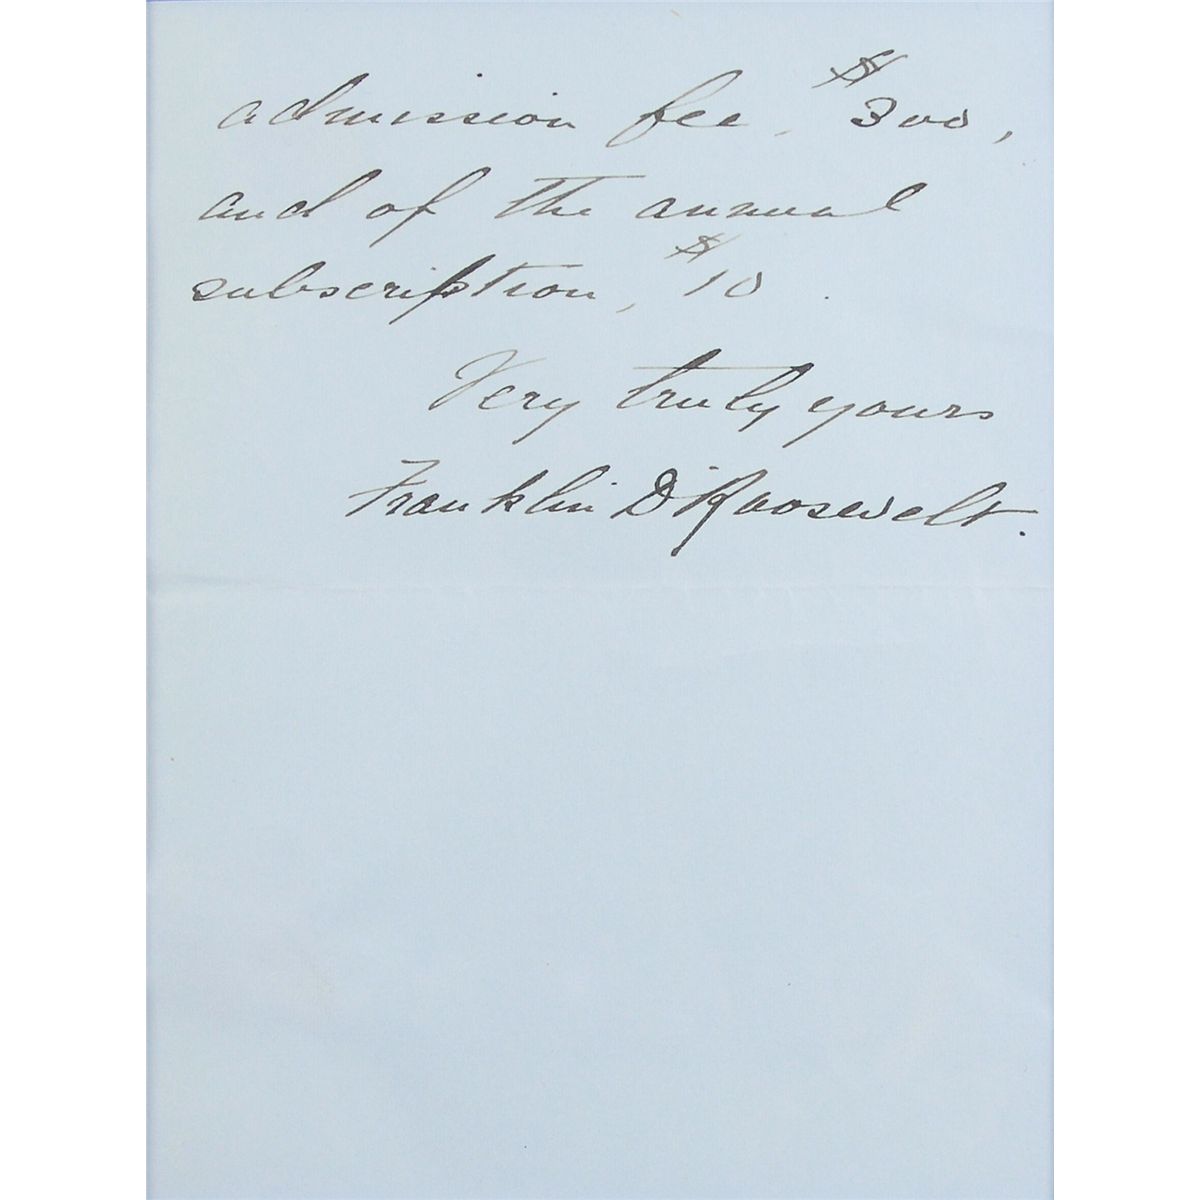 admission fee, $300,
and of the annual
subscription, $10.
Very truly yours
Franklin D Roosevelt.